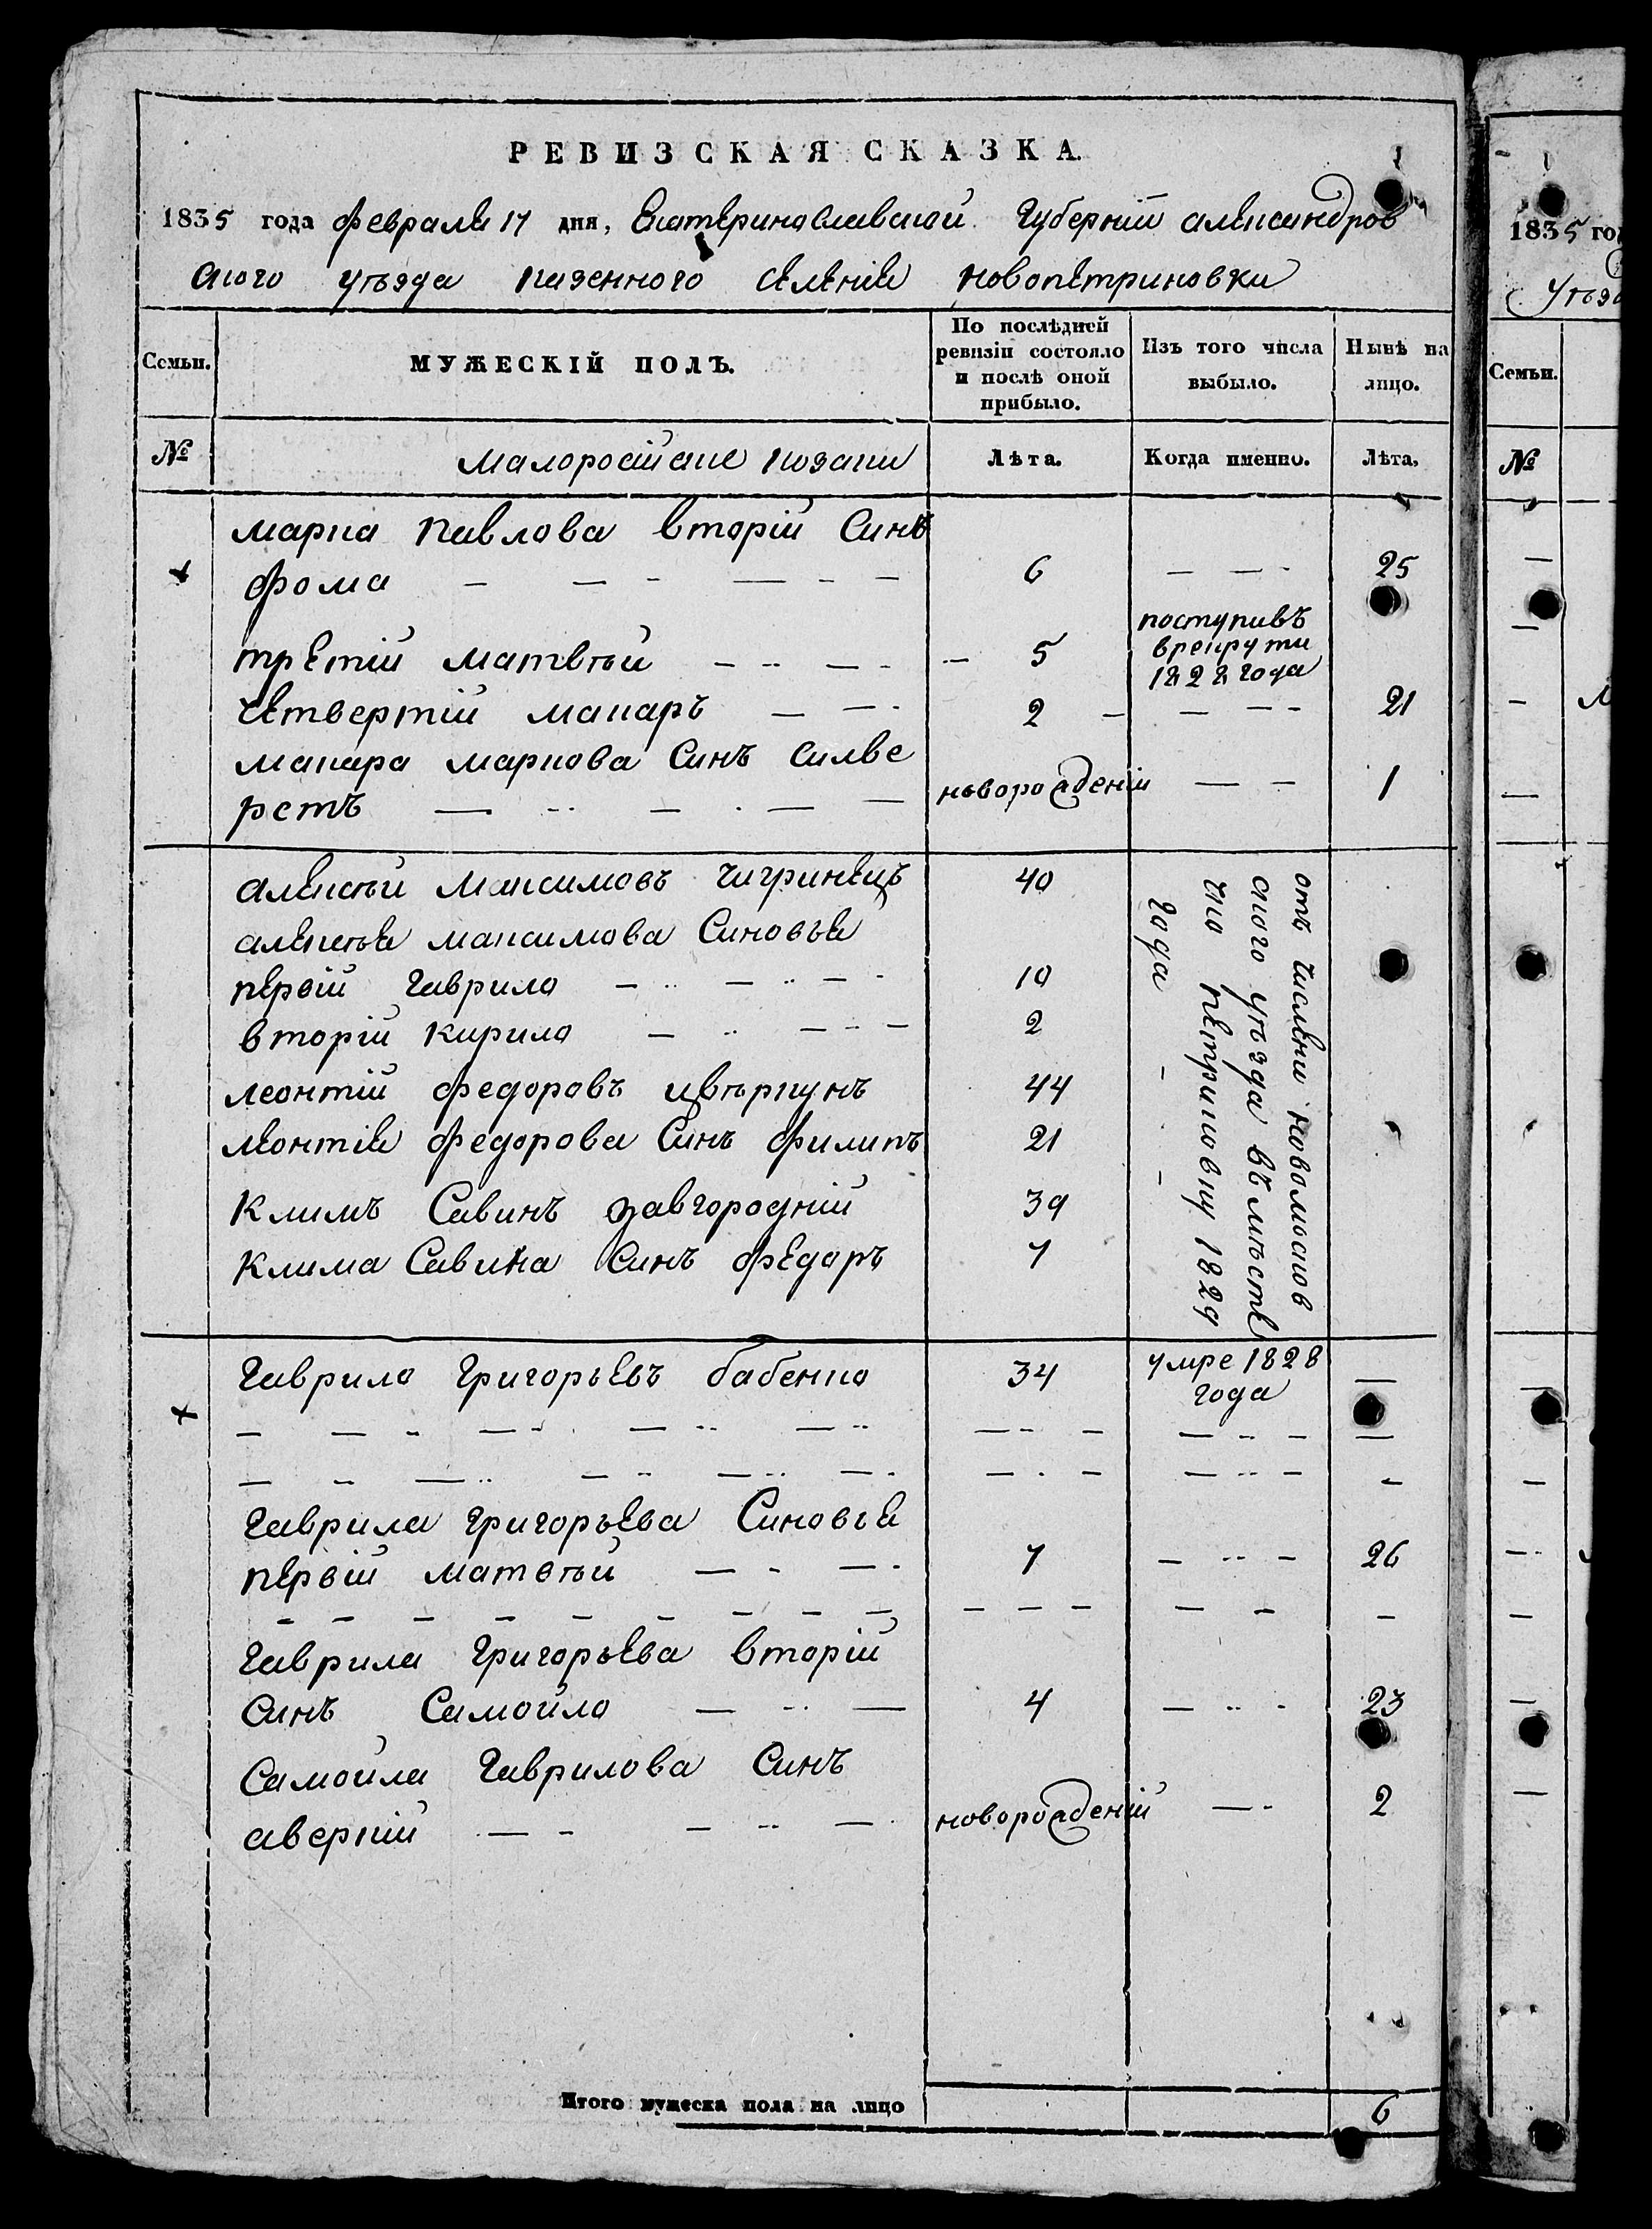 РЕВИЗСКАЯ СКАЗКА.
1835 года февраля 17 дня, Екатериславской Губерній александров
ского уѣзда казенного селенія новопетриковки
Семьи.
МУЖЕСКІЙ ПОЛЪ.
По послѣдней ревизіи состояло и послѣ оной прибыло.
Изъ того числа выбыло.
Нынѣ на лицо.
№
малоросійскіе козаки
Лѣта.
Когда именно.
Лѣта.
марка павлова вторій Синъ
фома — — — — — — 6 — — — 25
третій матвѣй — — — — — 5 поступивъ
в рекрути
1828 года
четвертій макаръ — — — 2 — — — — 21
макара маркова Синъ Силве
рстъ — — — — — новорожденій — — 1
алексѣй максимовъ чигринецъ 40
алексѣя максимова Синовья
первій гаврило — — — — — 10
вторій кирило — — — — — 2
леонтій федоровъ цвѣркунъ 44
леонтія федорова Синъ филипъ 21
Климъ Савинъ завгородній 39
Клима Савина Синъ федоръ 7
отъ числени новомосков
ского уѣзда въ мѣсте
чко петриковку 1829
года
гаврило григорьевъ бабенко 34 умре 1828 —
года
гаврила григорьева Синовья
первій матвѣй — — — 7 — — — 26
гаврила григорьева вторій
Синъ Самойло — — — 4 — — — 23
Самойла гаврилова Синъ
аверкій — — — — — новорожденій — — 2
Итого мужеска пола на лицо 6
1835 год
уѣзд
Семьи.
№